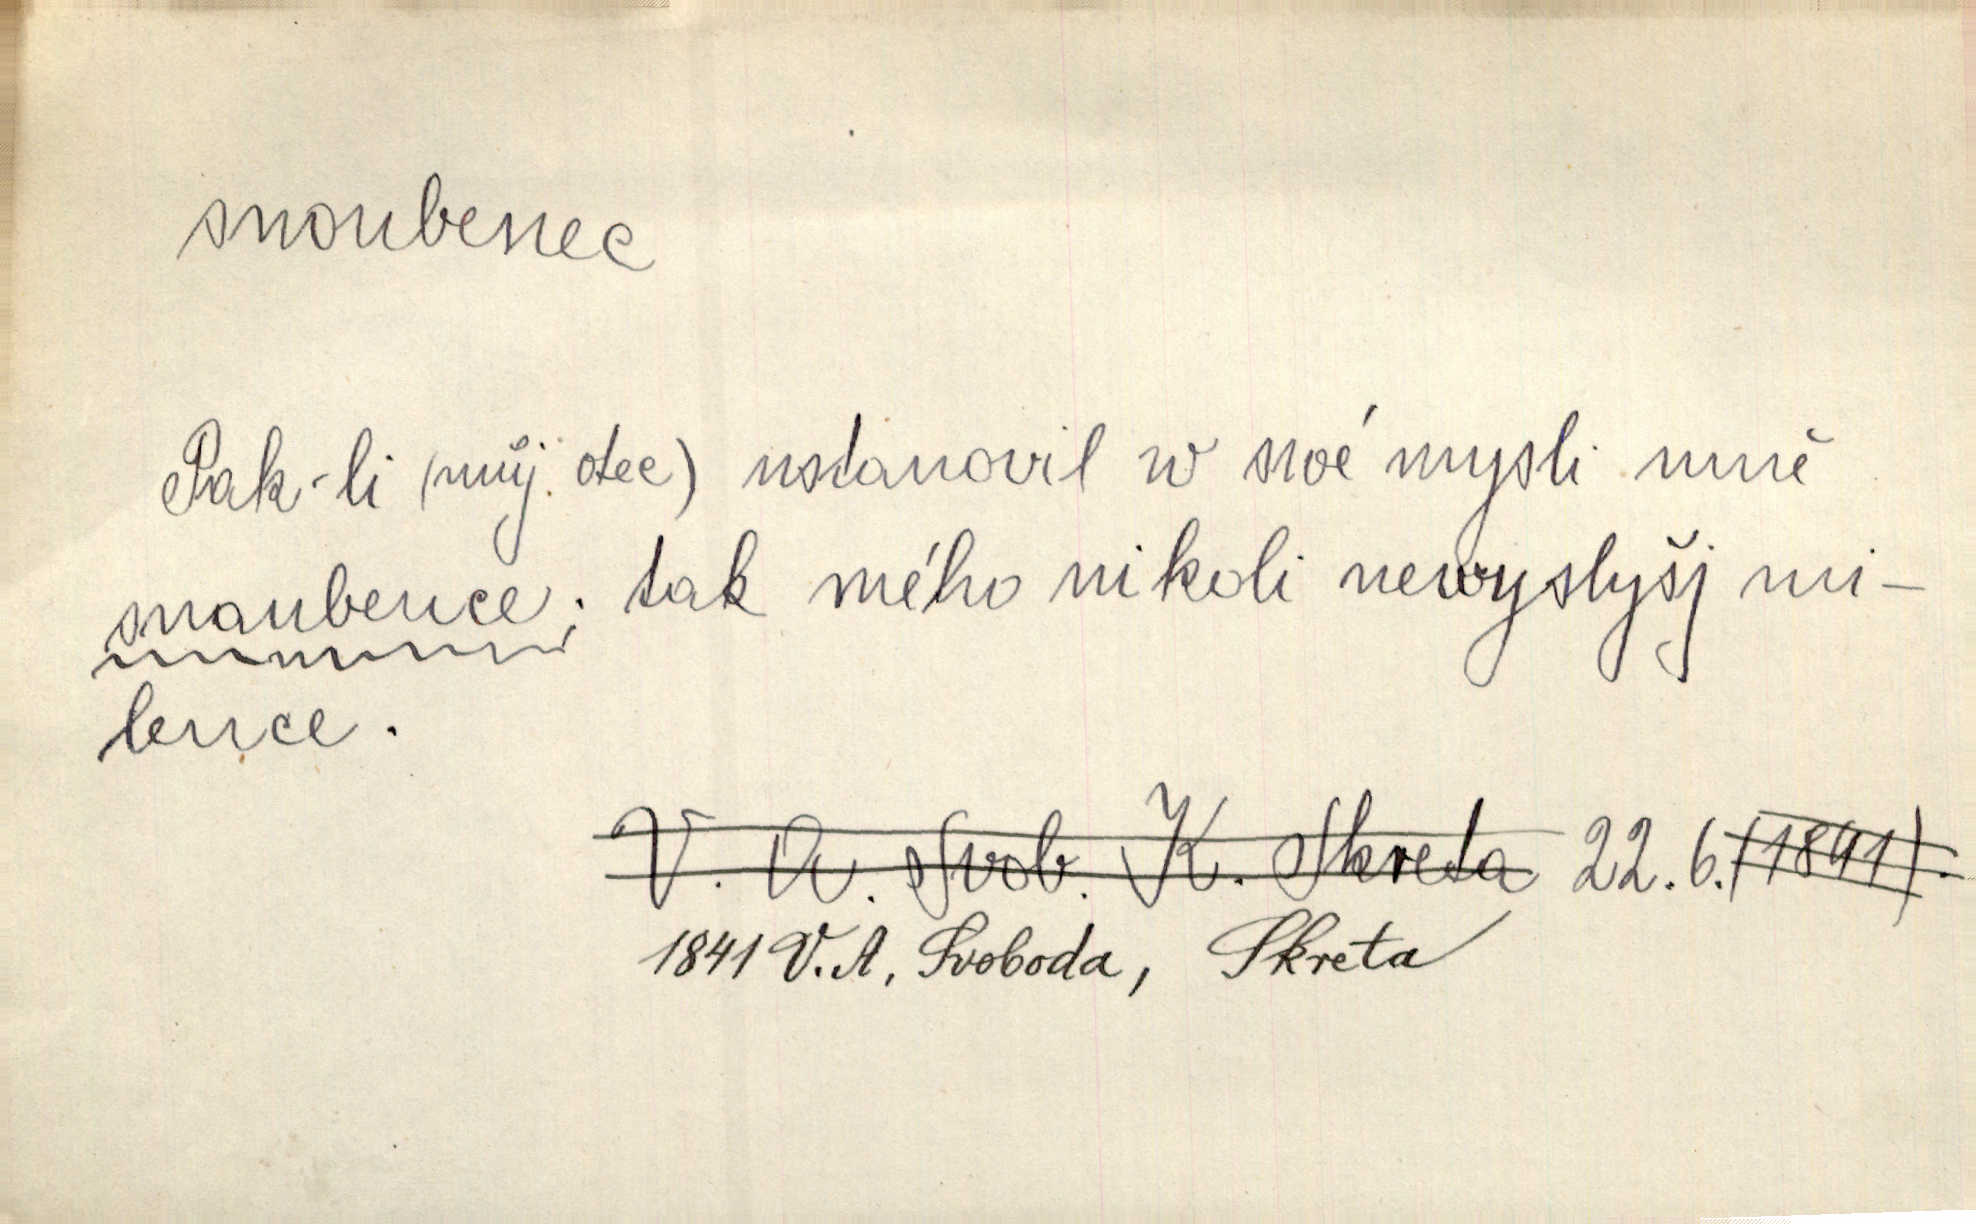 snoubenec
Pak-li (můj otec) ustanovil w swé mysli mně
snaubence; tak mého nikoli newyslyšj mi-
lence.
V. A. Svob. K. Skreta 22. 6. (1841).
1841 V. A. Svoboda, Skreta